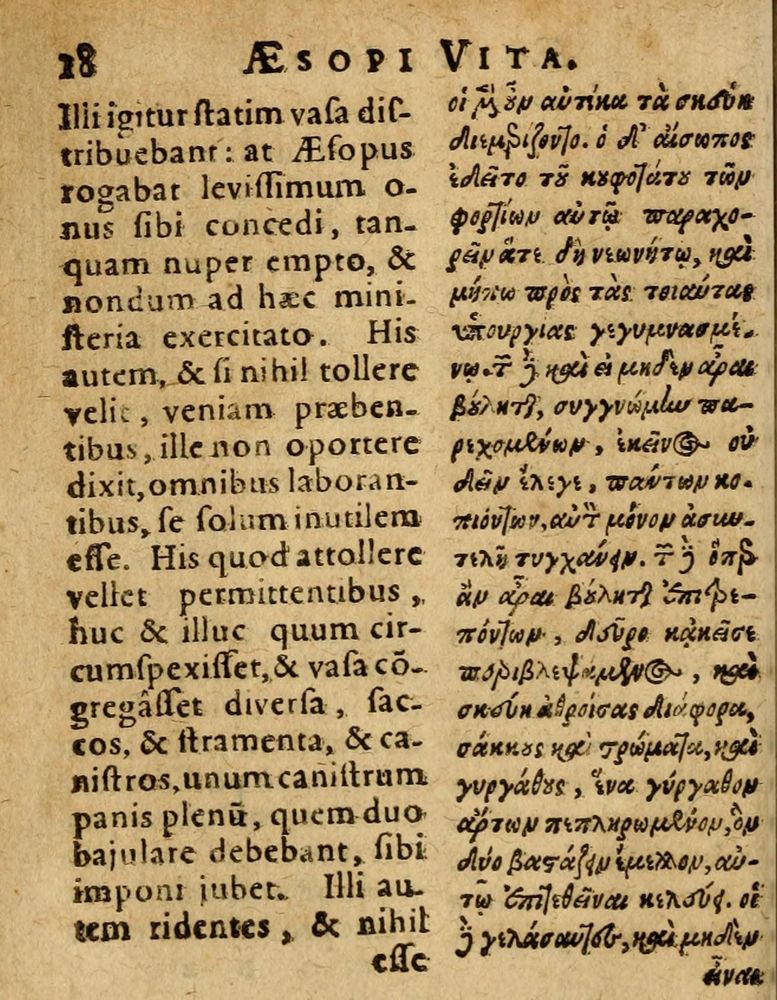 28 ÆSOPI VITA.
Illi igitur ſtatim vaſa diſ-
tribuebant: at Æſopus
rogabat leviſſimum o-
nus ſibi concedi, tan-
quam nuper empto, &
nondum ad hæc mini-
ſteria exercitato. His
autem, & ſi nihil tollere
velit, veniam præben-
tibus, ille non oportere
dixit, omnibus laboran-
tibus, ſe ſolum inutilem
eſſe. His quod attollere
vellet permittentibus,
huc & illuc quum cir-
cumſpexiſſet, & vaſa cō-
gregâſſet diverſa, ſac-
cos, & ſtramenta, & ca-
niſtros, unum caniſtrum
panis plenū, quem duo
bajulare debebant, ſibi
imponi jubet. Illi au-
tem ridentes, & nihil
eſſe
οἱ μὲν οὖν αὐτίκα τὰ σκεύη
διεμερίζοντο. ὁ δ' αἴσωπος
ἐδεῖτο τοῦ κουφοτάτου τῶν
φορτίων αὐτῷ παραχω-
ρεῖν ἅτε δὴ νεωνήτῳ, καὶ
μήπω πρὸς τὰς τοιαύτας
ὑπουργίας γεγυμνασμέ-
νῳ. τῶν δὲ καὶ εἰ μηδὲν ἆραι
βούλεται, συγγνώμην πα-
ρεχομένων, ἐκεῖνος οὐ
δεῖν ἔλεγε, πάντων κο-
πιόντων, αὐτὸν μόνον ἀσυν-
τελῆ τυγχάνειν. τῶν δὲ ὅπερ
ἂν ἆραι βούληται ἐπιτρε-
πόντων, δεῦρο κἀκεῖσε
περιβλεψάμενος, καὶ
σκεύη ἀθροίσας διάφορα,
σάκκους καὶ στρώματα, καὶ
γυργάθους, ἕνα γύργαθον
ἄρτων πεπληρωμένον, ὃν
δύο βαστάζειν ἔμελλον, αὐ-
τῷ ἐπιτεθεῖναι κελεύει. οἱ
δὲ γελάσαντες, καὶ μηδὲν
εἶναι